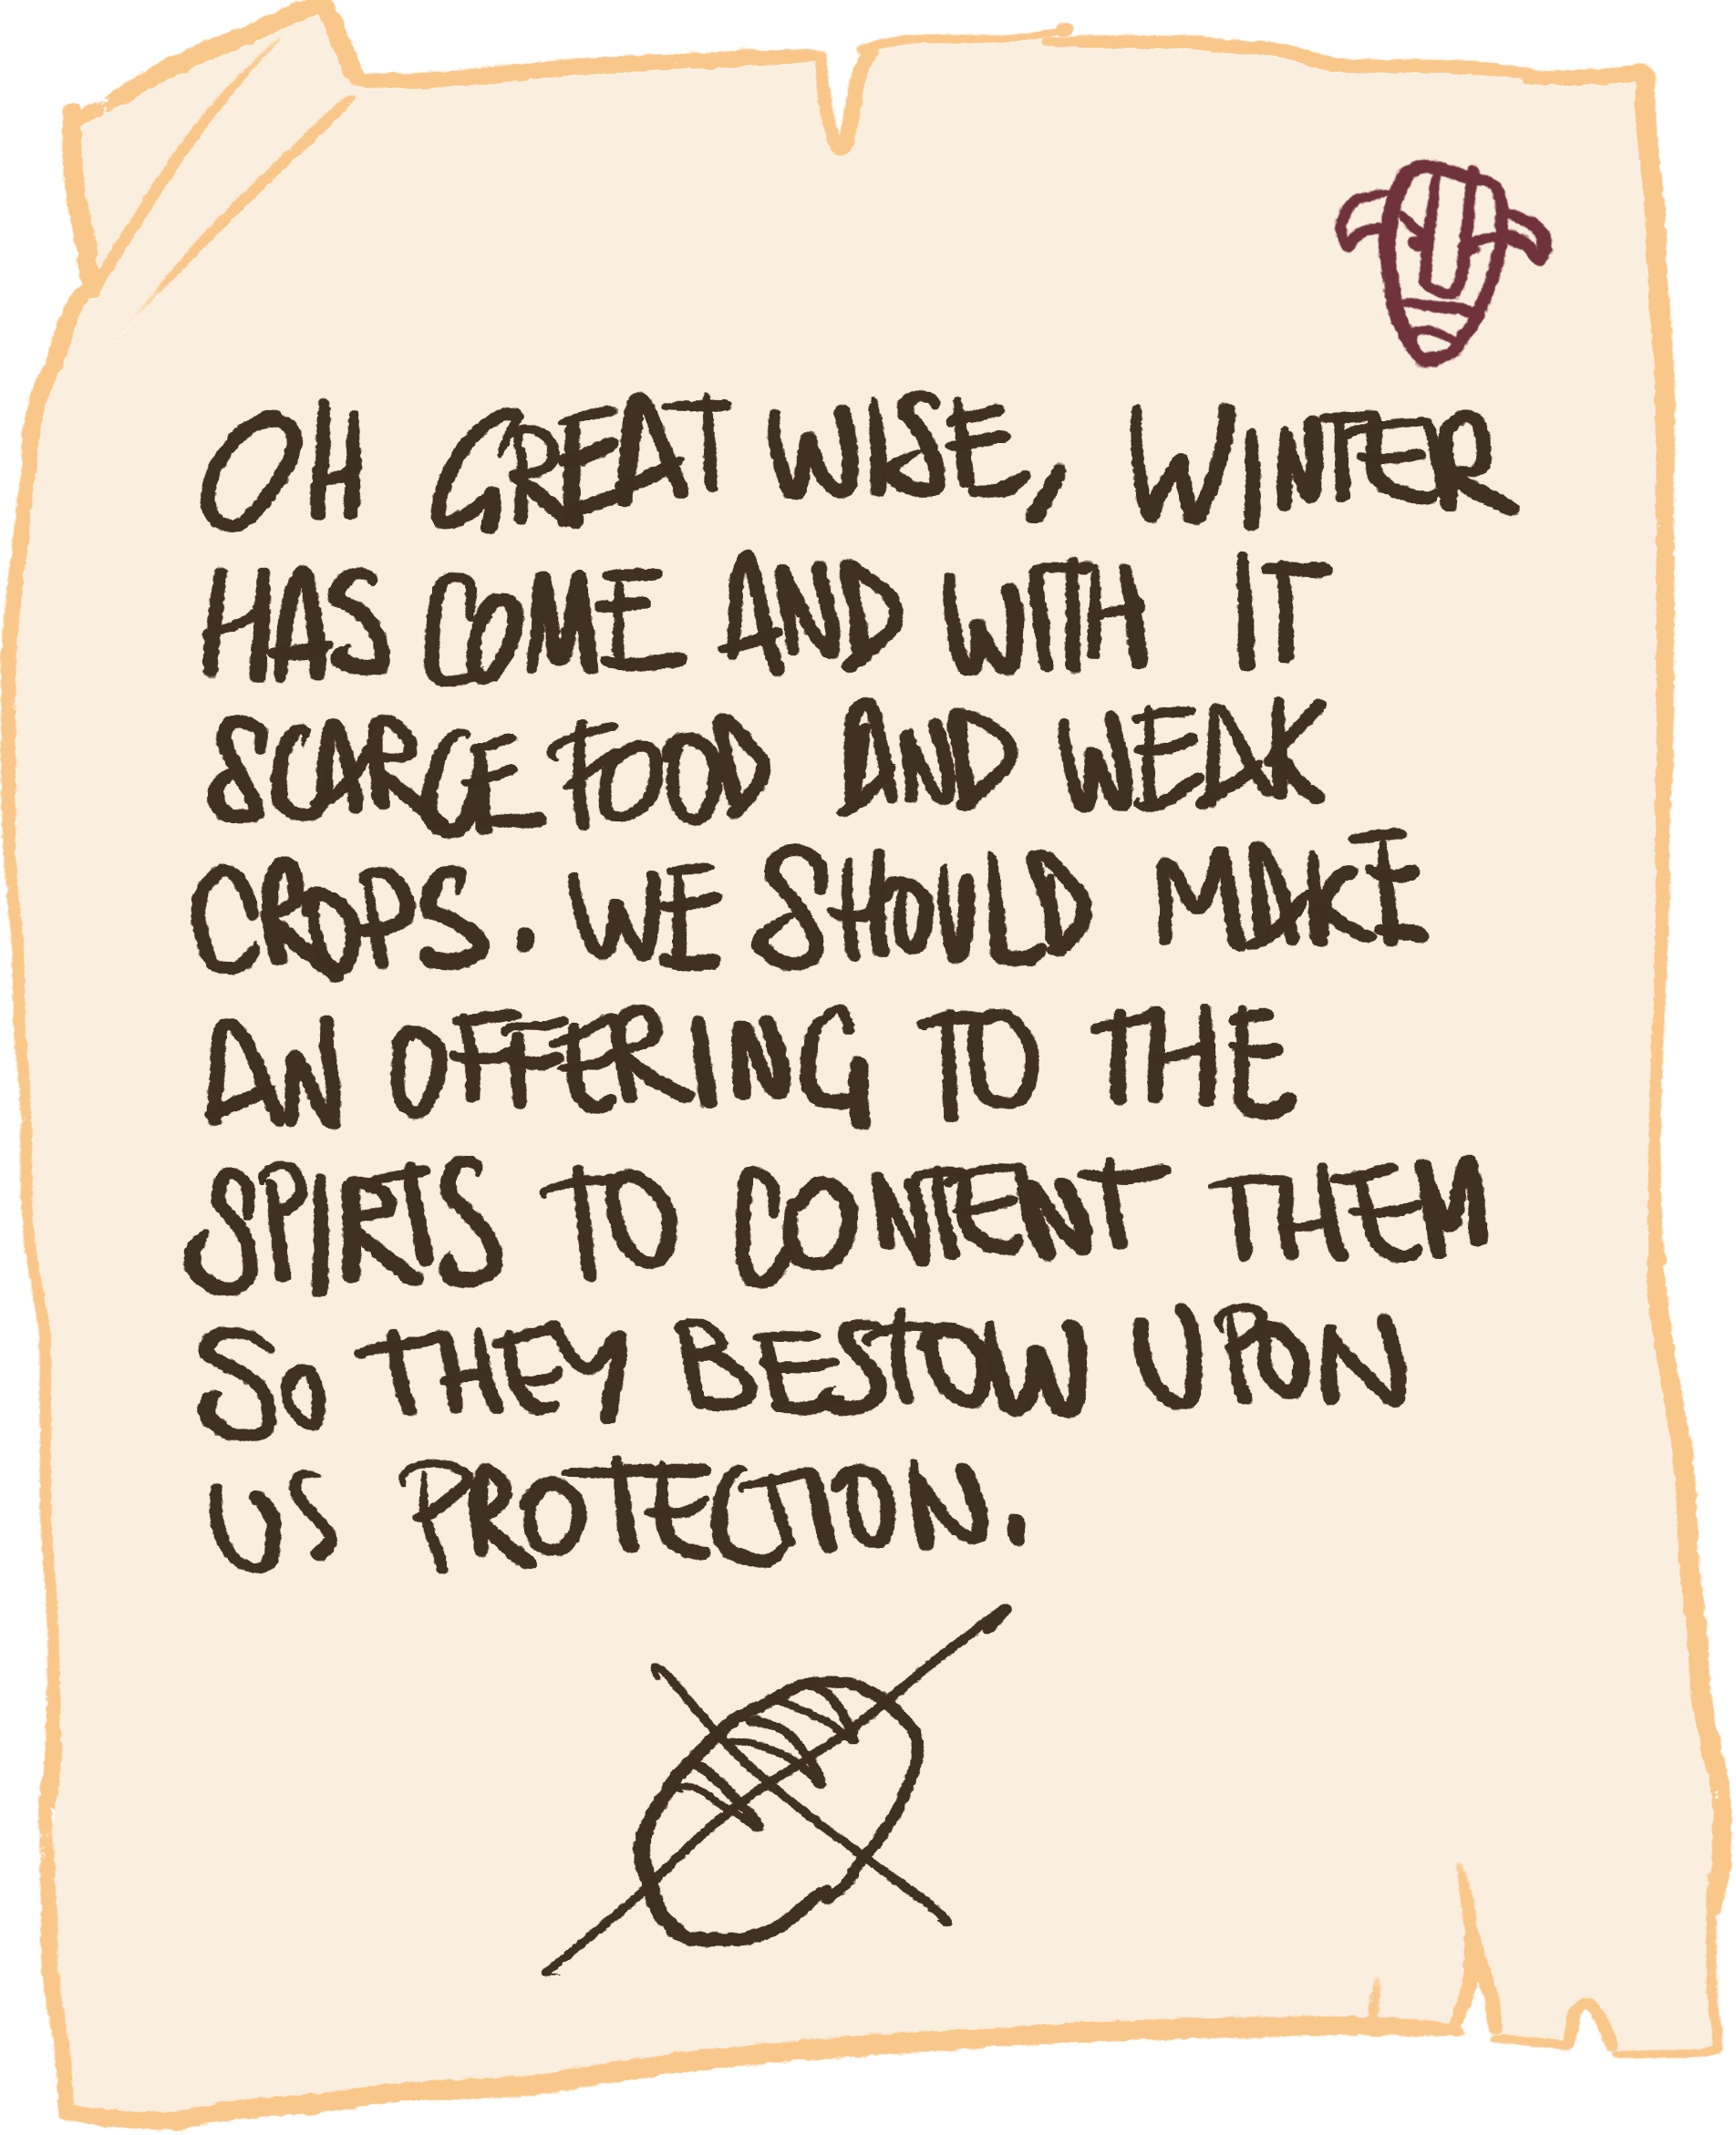 OH GREAT WISE, WINTER
HAS COME AND WITH IT
SCARCE FOOD AND WEAK
CROPS. WE SHOULD MAKE
AN OFFERING TO THE
SPIRTS TO CONTENT THEM
SO THEY BESTOW UPON
US PROTECTION.